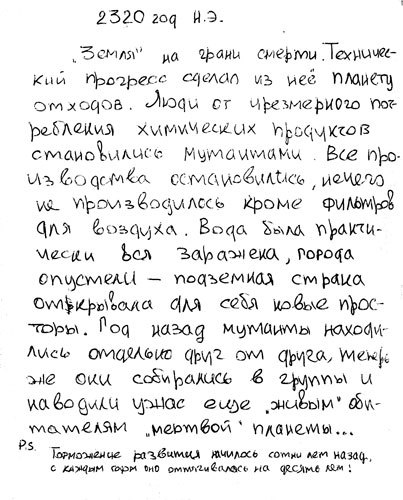 2320 год н.э.
„Земля" на грани смерти. Техничес-
кий прогресс сделал из неё планету
отходов. Люди от чрезмерного пот-
ребления химических продуктов
становились мутантами. Все про-
изводства остановились, нечего
не производилось кроме фильтров
для воздуха. Вода была практи-
чески вся заражена, города
опустели – подземная страна
открывала для себя новые прос-
торы. Год назад мутанты находи-
лись отдельно друг от друга, тепер
же они собирались в группы и
наводили ужас еще „живым" оби-
тателям „мертвой" планеты...
P.S. Торможение развития началось сотни лет назад,
с каждым годом оно оттягивалось на десять лет!